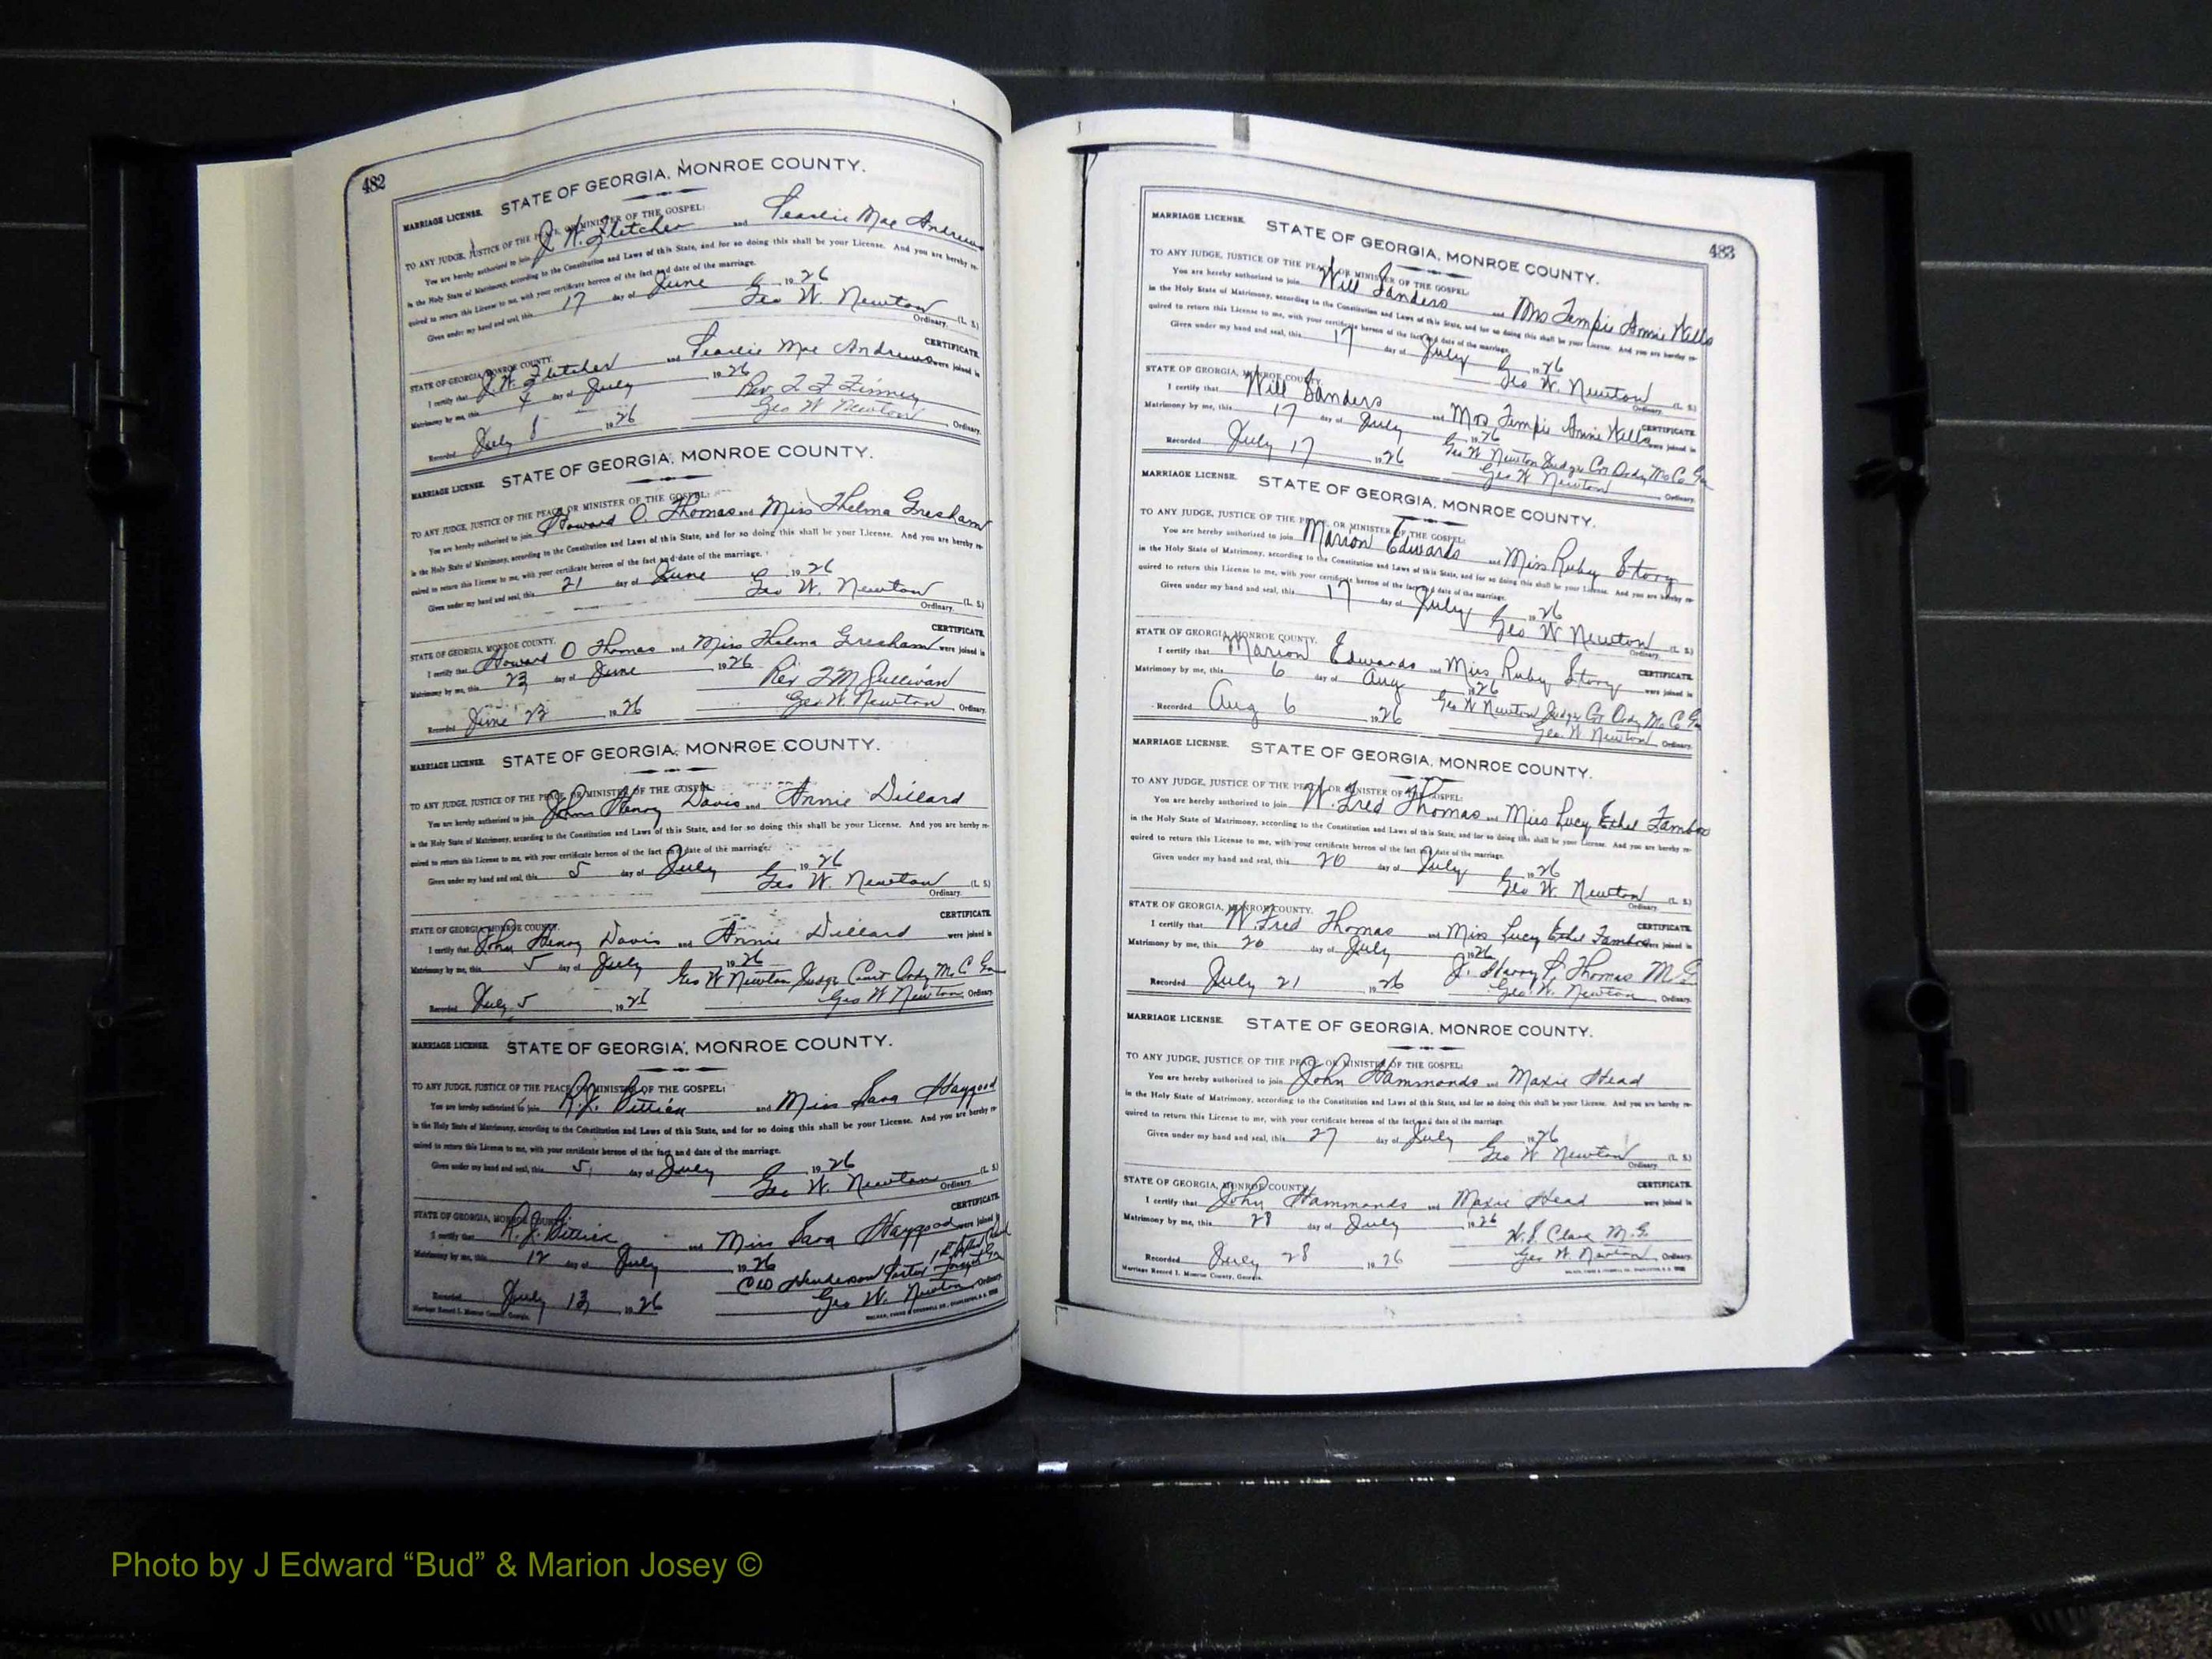 482
STATE OF GEORGIA, MONROE COUNTY.
MARRIAGE LICENSE.
TO ANY JUDGE, JUSTICE OF THE PEACE, OR MINISTER OF THE GOSPEL:
You are hereby authorized to join J. W. Fletcher and Pearlie Mae Andrews
in the Holy State of Matrimony, according to the Constitution and Laws of this State, and for so doing this shall be your License. And you are hereby re-
quired to return this License to me, with your certificate hereon of the fact and date of the marriage.
Given under my hand and seal, this 17 day of June 1926
Geo W. Newton (L. S.)
Ordinary.
CERTIFICATE.
STATE OF GEORGIA, MONROE COUNTY.
I certify that J. W. Fletcher and Pearlie Mae Andrews were joined in
Matrimony by me, this 4 day of July 1926
Rev.
Recorded July 8 1926 Geo W Newton, Ordinary.
MARRIAGE LICENSE. STATE OF GEORGIA, MONROE COUNTY.
TO ANY JUDGE, JUSTICE OF THE PEACE, OR MINISTER OF THE GOSPEL:
You are hereby authorized to join Howard O. Thomas and Miss Thelma Gresham
in the Holy State of Matrimony, according to the Constitution and Laws of this State, and for so doing this shall be your License. And you are hereby re-
quired to return this License to me, with your certificate hereon of the fact and date of the marriage.
Given under my hand and seal, this 21 day of June 1926
Geo W. Newton (L. S.)
Ordinary.
CERTIFICATE.
STATE OF GEORGIA, MONROE COUNTY.
I certify that Howard O Thomas and Miss Thelma Gresham were joined in
Matrimony by me, this 23 day of June 1926
Rev Sullivan
Recorded June 23 1926 Geo W. Newton, Ordinary.
MARRIAGE LICENSE. STATE OF GEORGIA, MONROE COUNTY.
TO ANY JUDGE, JUSTICE OF THE PEACE, OR MINISTER OF THE GOSPEL:
You are hereby authorized to join John Henry Davis and Annie Dillard
in the Holy State of Matrimony, according to the Constitution and Laws of this State, and for so doing this shall be your License. And you are hereby re-
quired to return this License to me, with your certificate hereon of the fact and date of the marriage.
Given under my hand and seal, this 5 day of July 1926
Geo W. Newton (L. S.)
Ordinary.
CERTIFICATE.
STATE OF GEORGIA, MONROE COUNTY.
I certify that John Henry Davis and Annie Dillard were joined in
Matrimony by me, this 5 day of July 1926
Geo W Newton Judge Court Ordy M. C. Ga
Recorded July 5 1926 Geo W Newton, Ordinary.
MARRIAGE LICENSE. STATE OF GEORGIA, MONROE COUNTY.
TO ANY JUDGE, JUSTICE OF THE PEACE, OR MINISTER OF THE GOSPEL:
You are hereby authorized to join R. J. Bittick and Miss Sara Haygood
in the Holy State of Matrimony, according to the Constitution and Laws of this State, and for so doing this shall be your License. And you are hereby re-
quired to return this License to me, with your certificate hereon of the fact and date of the marriage.
Given under my hand and seal, this 5 day of July 1926
Geo W. Newton (L. S.)
Ordinary.
CERTIFICATE.
STATE OF GEORGIA, MONROE COUNTY.
I certify that R. J. Bittick and Miss Sara Haygood were joined in
Matrimony by me, this 12 day of July 1926
Henderson Pastor Forsyth Ga
Recorded July 13 1926 Geo W. Newton, Ordinary.
Marriage Record I. Monroe County, Georgia.
483
MARRIAGE LICENSE. STATE OF GEORGIA, MONROE COUNTY.
TO ANY JUDGE, JUSTICE OF THE PEACE, OR MINISTER OF THE GOSPEL:
You are hereby authorized to join Will Sanders and Mrs Tempie Annie Wells
in the Holy State of Matrimony, according to the Constitution and Laws of this State, and for so doing this shall be your License. And you are hereby re-
quired to return this License to me, with your certificate hereon of the fact and date of the marriage.
Given under my hand and seal, this 17 day of July 1926
Geo W. Newton (L. S.)
Ordinary.
STATE OF GEORGIA, MONROE COUNTY.
CERTIFICATE.
I certify that Will Sanders and Mrs Tempie Annie Wells were joined in
Matrimony by me, this 17 day of July 1926
Geo W Newton Judge Ct Ordy M. C. Ga
Recorded July 17 1926 Geo W Newton, Ordinary.
MARRIAGE LICENSE. STATE OF GEORGIA, MONROE COUNTY.
TO ANY JUDGE, JUSTICE OF THE PEACE, OR MINISTER OF THE GOSPEL:
You are hereby authorized to join Marion Edwards and Miss Ruby Story
in the Holy State of Matrimony, according to the Constitution and Laws of this State, and for so doing this shall be your License. And you are hereby re-
quired to return this License to me, with your certificate hereon of the fact and date of the marriage.
Given under my hand and seal, this 17 day of July 1926
Geo W Newton (L. S.)
Ordinary.
STATE OF GEORGIA, MONROE COUNTY.
CERTIFICATE.
I certify that Marion Edwards and Miss Ruby Story were joined in
Matrimony by me, this 6 day of Aug 1926
Geo W Newton Judge Ct Ordy M. C. Ga
Recorded Aug 6 1926 Geo W Newton, Ordinary.
MARRIAGE LICENSE. STATE OF GEORGIA, MONROE COUNTY.
TO ANY JUDGE, JUSTICE OF THE PEACE, OR MINISTER OF THE GOSPEL:
You are hereby authorized to join W. Fred Thomas and Miss Lucy Ethel Tambro
in the Holy State of Matrimony, according to the Constitution and Laws of this State, and for so doing this shall be your License. And you are hereby re-
quired to return this License to me, with your certificate hereon of the fact and date of the marriage.
Given under my hand and seal, this 20 day of July 1926
Geo W. Newton (L. S.)
Ordinary.
STATE OF GEORGIA, MONROE COUNTY.
CERTIFICATE.
I certify that W. Fred Thomas and Miss Lucy Ethel Tambro were joined in
Matrimony by me, this 20 day of July 1926
J. Harry P. Thomas M. G.
Recorded July 21 1926 Geo. W. Newton, Ordinary.
MARRIAGE LICENSE. STATE OF GEORGIA, MONROE COUNTY.
TO ANY JUDGE, JUSTICE OF THE PEACE, OR MINISTER OF THE GOSPEL:
You are hereby authorized to join John Hammonds and Maxie Head
in the Holy State of Matrimony, according to the Constitution and Laws of this State, and for so doing this shall be your License. And you are hereby re-
quired to return this License to me, with your certificate hereon of the fact and date of the marriage.
Given under my hand and seal, this 27 day of July 1926
Geo W Newton (L. S.)
Ordinary.
STATE OF GEORGIA, MONROE COUNTY.
CERTIFICATE.
I certify that John Hammonds and Maxie Head were joined in
Matrimony by me, this 28 day of July 1926
M. G.
Recorded July 28 1926 Geo W Newton, Ordinary.
Marriage Record I. Monroe County, Georgia.
Photo by J Edward “Bud” & Marion Josey ©